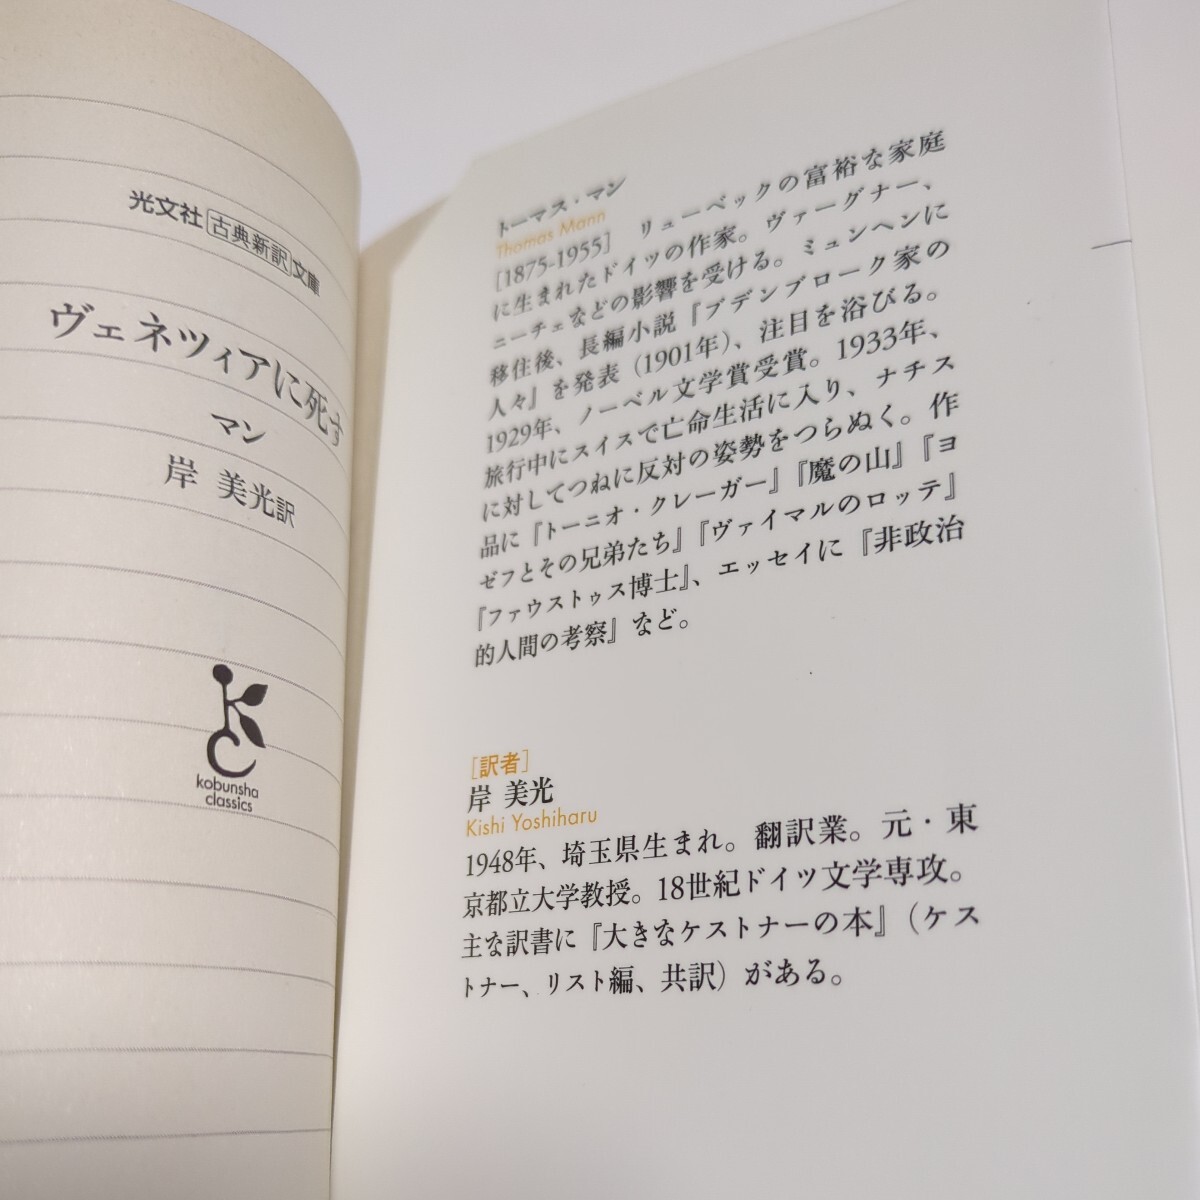 光文社古典新訳文庫
ヴェネツィアに死す
マン
岸 美光訳
kobunsha
classics
トーマス・マン
Thomas Mann
[1875-1955] リューベックの富裕な家庭
に生まれたドイツの作家。ヴァーグナー、
ニーチェなどの影響を受ける。ミュンヘンに
移住後、長編小説『ブデンブローク家の
人々』を発表（1901年）、注目を浴びる。
1929年、ノーベル文学賞受賞。1933年、
旅行中にスイスで亡命生活に入り、ナチス
に対してつねに反対の姿勢をつらぬく。作
品に『トーニオ・クレーガー』『魔の山』『ヨ
ゼフとその兄弟たち』『ヴァイマルのロッテ』
『ファウストゥス博士』、エッセイに『非政治
的人間の考察』など。
[訳者]
岸 美光
Kishi Yoshiharu
1948年、埼玉県生まれ。翻訳業。元・東
京都立大学教授。18世紀ドイツ文学専攻。
主な訳書に『大きなケストナーの本』（ケス
トナー、リスト編、共訳）がある。